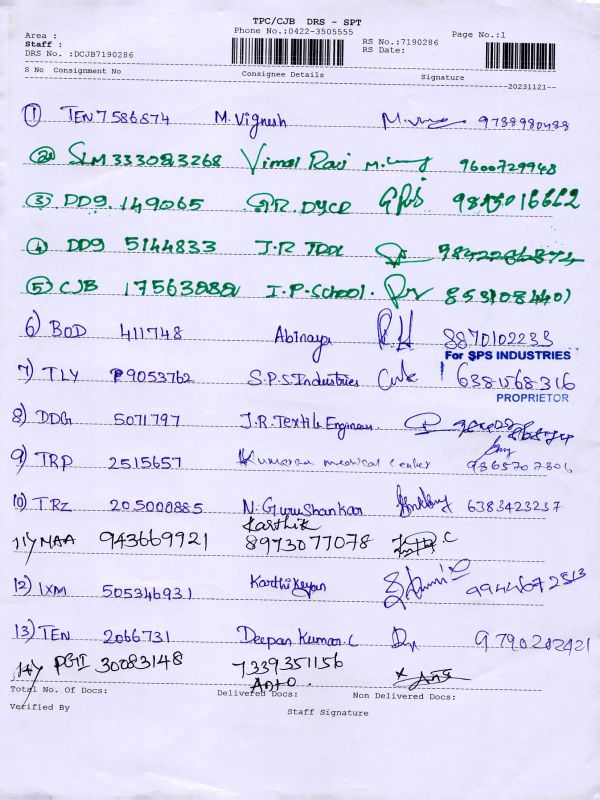 TPC/CJB DRS - SPT
Area :
Phone No.:0422-3505555
Page No.:1
Staff :
RS No.:7190286
DRS No. :DCJB7190286
RS Date:
S No Consignment No Consignee Details Signature
20231121
1 TEN 7586874 M. Vignesh 9788980488
2 SLM 333083268 Vimal Ravi 9600729948
3 DD9 149065
4 DD9 5144833 J.R
5 CJB I.P-School. 8531084401
6) BOD 411748 Abinaya 8870102233
For SPS INDUSTRIES
7) TLY 9053762 S.P.S.Industries 6381568316
PROPRIETOR
8) DDG 5071797 J.R.Textile
9) TRP 2515657 Kumaran medical center 9365707806
10) TRZ 205000885 N. GuruShankar 6383423237
Karthik
11) MAA 943669921 8973077078
12) IXM 505346931 Karthikeyan
13) TEN 2066731 Deepan Kumar.C 9790202421
14) 30083148 7339351156
Anto
Total No. Of Docs: Delivered Docs: Non Delivered Docs:
Verified By
Staff Signature